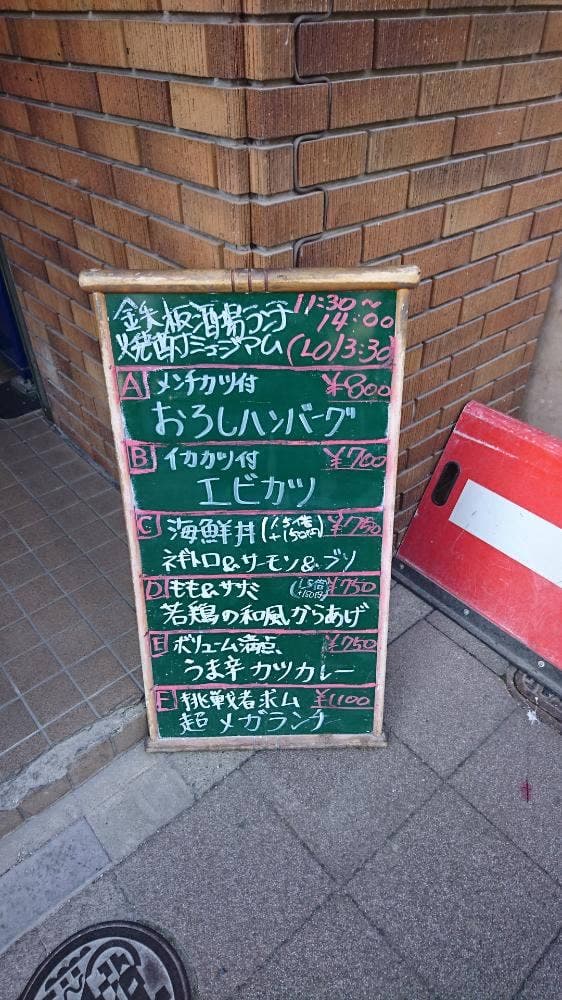 鉄板酒場ランチ 11:30〜
14:00
焼酎ミュージアム (LO13:30)
A メンチカツ付 ¥800
おろしハンバーグ
B イカカツ付 ¥700
エビカツ
C 海鮮丼 (1.5倍 +150円) ¥750
ネギトロ&サーモン&ブリ
D もも&ササミ (1.5倍 +150円) ¥750
若鶏の和風からあげ
E ボリューム満点 ¥750
うま辛カツカレー
F 挑戦者求ム ¥1100
超メガランチ